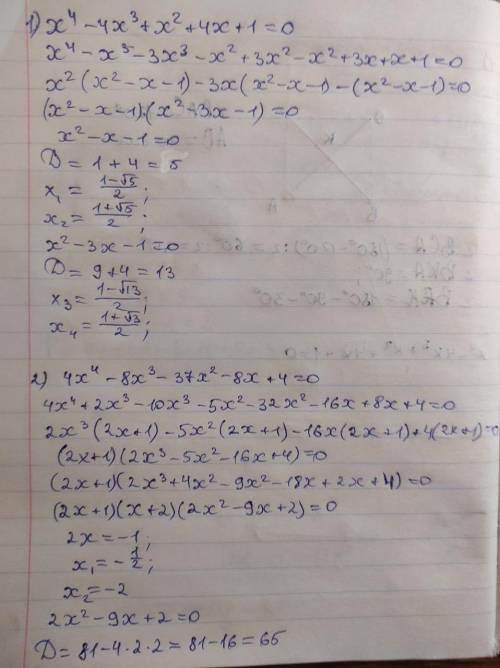 1) x⁴ - 4x³ + x² + 4x + 1 = 0
x⁴ - x³ - 3x³ - x² + 3x² - x² + 3x + x + 1 = 0
x² (x² - x - 1) - 3x (x² - x - 1) - (x² - x - 1) = 0
(x² - x - 1)·(x² - 3x - 1) = 0
x² - x - 1 = 0
D = 1 + 4 = 5
x₁ = (1-√5)/2;
x₂ = (1+√5)/2;
x² - 3x - 1 = 0
D = 9 + 4 = 13
x₃ = (1-√13)/2;
x₄ = (1+√13)/2;
2) 4x⁴ - 8x³ - 37x² - 8x + 4 = 0
4x⁴ + 2x³ - 10x³ - 5x² - 32x² - 16x + 8x + 4 = 0
2x³ (2x+1) - 5x² (2x+1) - 16x (2x+1) + 4(2x+1) = 0
(2x+1)(2x³ - 5x² - 16x + 4) = 0
(2x+1)(2x³ + 4x² - 9x² - 18x + 2x + 4) = 0
(2x+1)(x+2)(2x² - 9x + 2) = 0
2x = -1;
x₁ = -1/2;
x₂ = -2
2x² - 9x + 2 = 0
D = 81 - 4·2·2 = 81 - 16 = 65